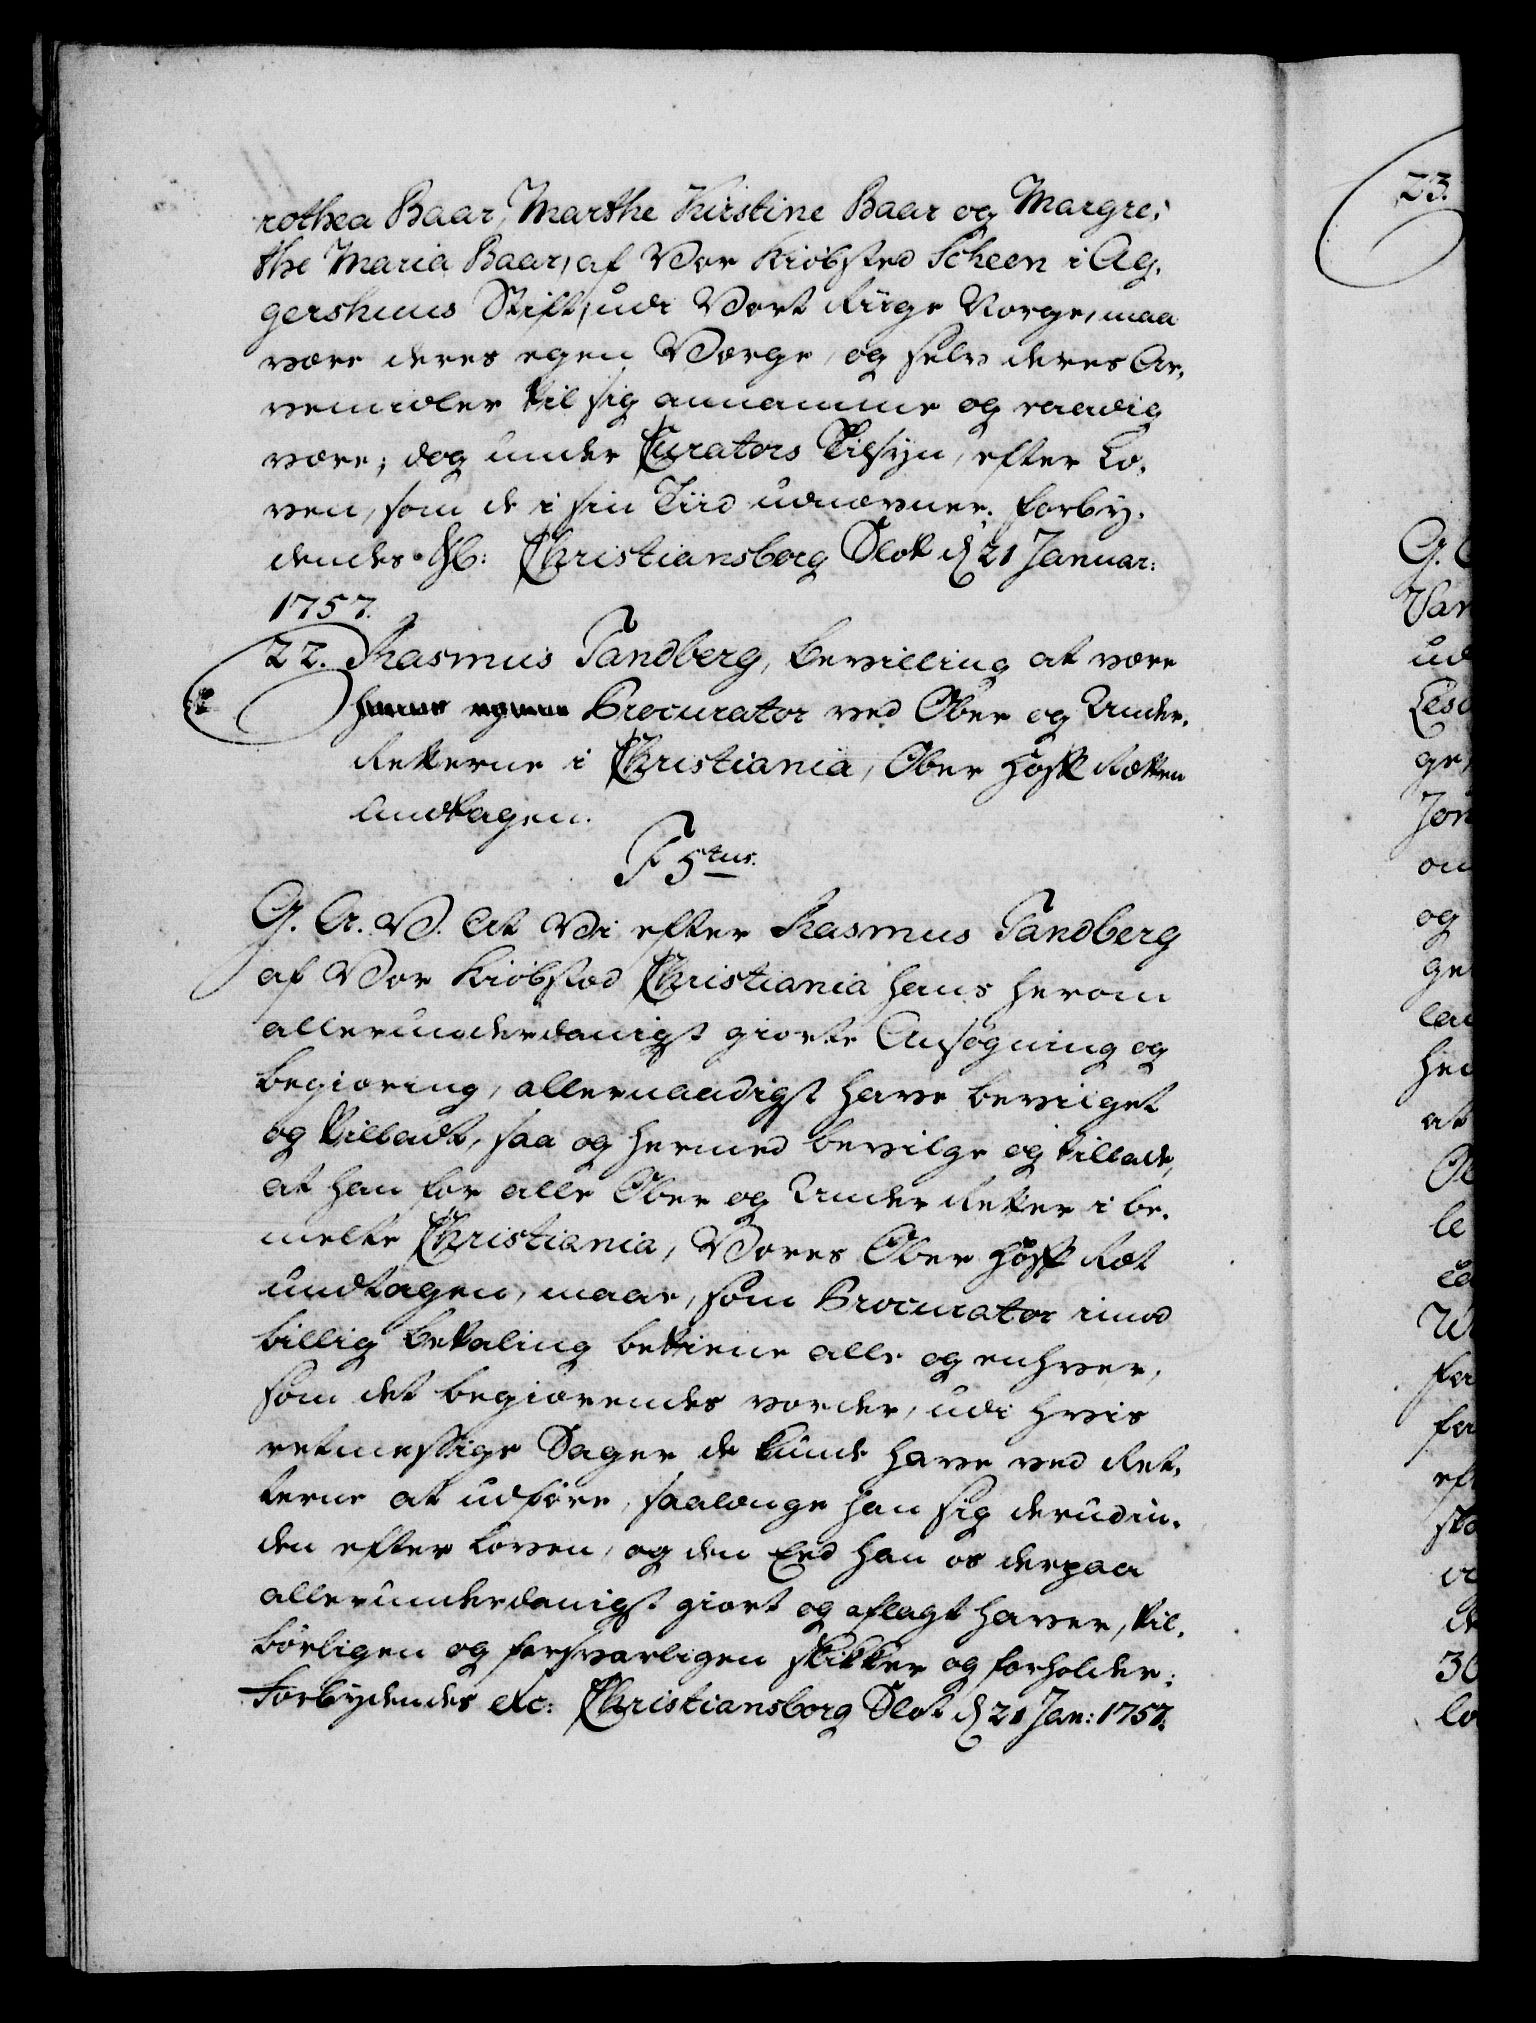 rothea Baar, Marthe Kirstine Baar og Margre-
the Maria Baar, af Vor Kiöbsted Scheen i Ag-
gershuus Stift, udi Vort Riige Norge, maa
være deres egen Værge, og selv deres Ar-
vemidler til sig annamme og raadig
være; dog under Curators Tilsyn, efter Lo-
ven, som de i sin Tiid udnævner. Forby-
dendes Christiansborg Slot d 21 Januar:
1757.
22. Rasmus Tandberg, bevilling at være
Procurator ved Ober og Under-
Retterne i Christiania, Ober Hoff Retten
undtagen.
F 5tus.
G. A. V. At Vi efter Rasmus Tandberg
af Vor Kiöbstad Christiania hans herom
allerunderdanigst giorte Ansøgning og
begiæring, allernaadigst have bevilget
og tilladt, saa og hermed bevilge og tillade,
at han for alle Ober og Under Retter i be-
melte Christiania, Vores Ober Hoff Ret
undtagen, maae, som Procurator imod
billig betaling betiene alle og enhver,
som det begiærendes vorder, udi hvis
retmessige Sager de kunde have ved Ret-
terne at udføre, saalænge han sig derudin-
den efter Loven, og den Eed han os derpaa
allerunderdanigst giort og aflagt haver, til-
børligen og forsvarligen skikker og forholder;
Forbydendes etc: Christiansborg Slot d 21 Jan: 1757.
23.